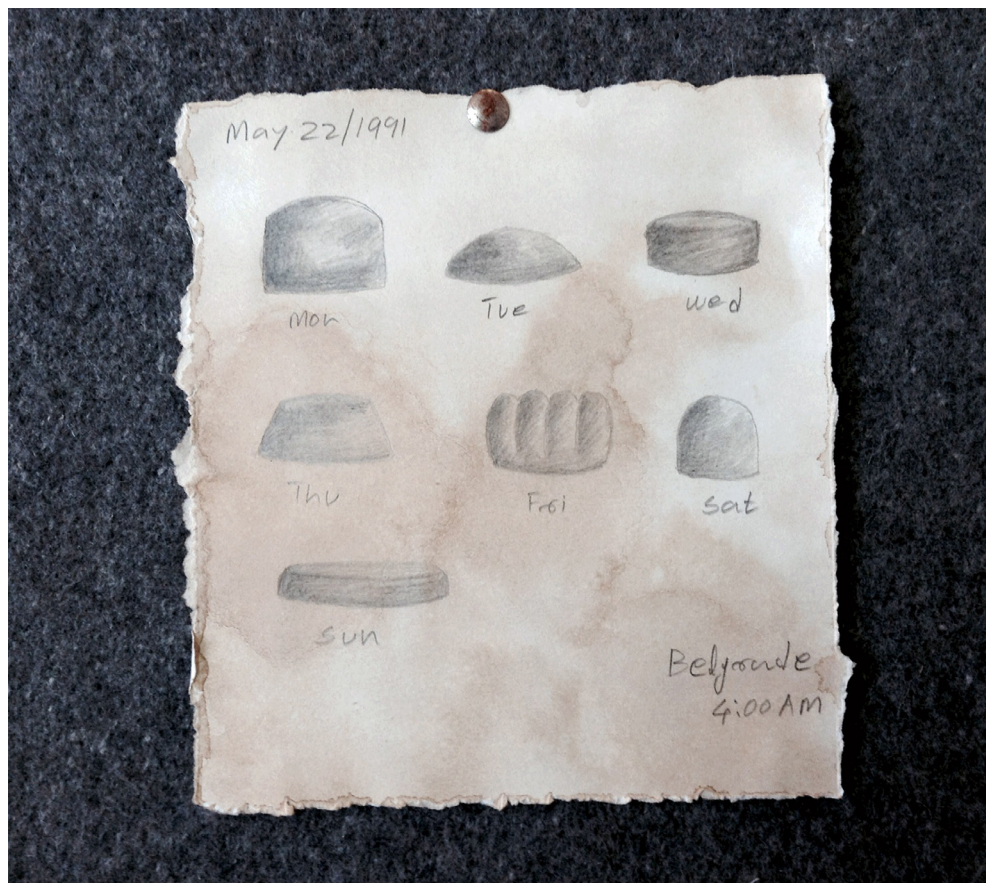 May 22/1991
Mon Tue Wed
Thu Fri Sat
Sun
Belgrade
4:00 AM